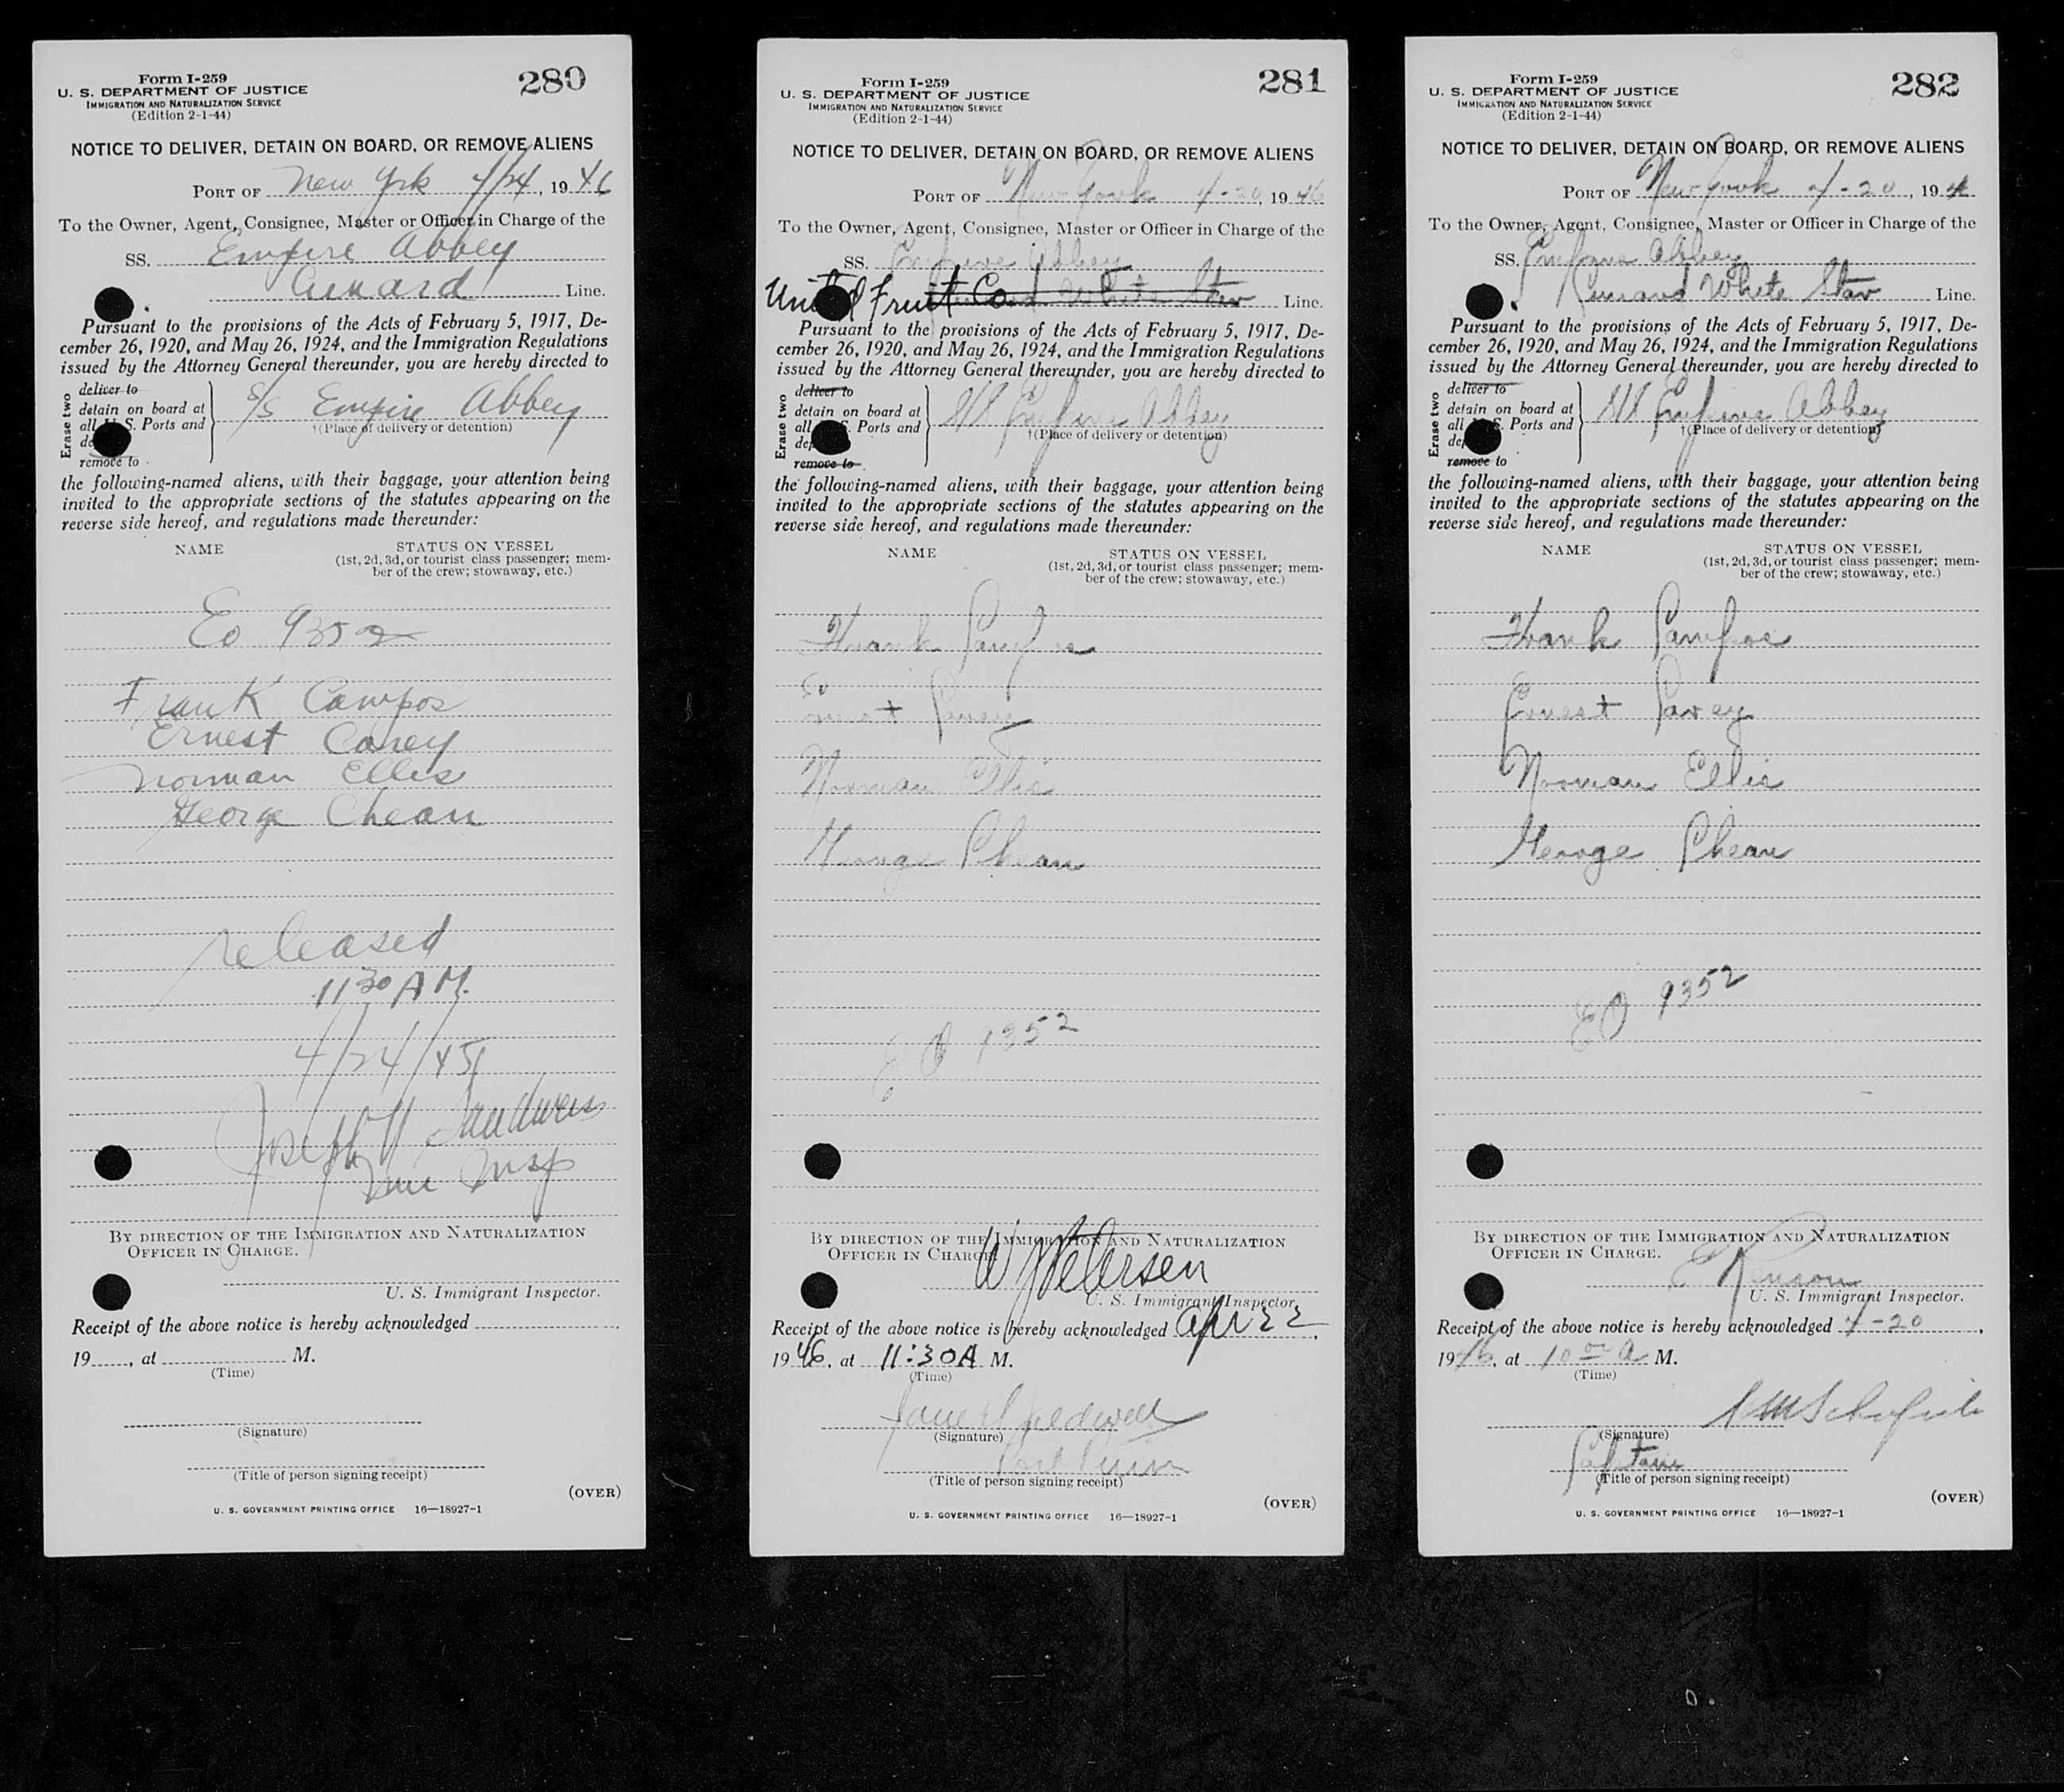 Form I-259
U. S. DEPARTMENT OF JUSTICE
IMMIGRATION AND NATURALIZATION SERVICE
(Edition 2-1-44)
280
NOTICE TO DELIVER, DETAIN ON BOARD, OR REMOVE ALIENS
PORT OF New York 4/24, 1946
To the Owner, Agent, Consignee, Master or Officer in Charge of the
SS. Empire Abbey
Cunard Line.
Pursuant to the provisions of the Acts of February 5, 1917, De-
cember 26, 1920, and May 26, 1924, and the Immigration Regulations
issued by the Attorney General thereunder, you are hereby directed to
Erase two
deliver to
detain on board at
all U.S. Ports and
remove to
S/S Empire Abbey
†(Place of delivery or detention)
the following-named aliens, with their baggage, your attention being
invited to the appropriate sections of the statutes appearing on the
reverse side hereof, and regulations made thereunder:
NAME
STATUS ON VESSEL
(1st, 2d, 3d, or tourist class passenger; mem-
ber of the crew; stowaway, etc.)
Eo 9352
Frank Campos
Ernest Carey
Norman Ellis
George Chean
released
11 30 AM.
4/24/45
Joseph
Imm Insp
BY DIRECTION OF THE IMMIGRATION AND NATURALIZATION
OFFICER IN CHARGE.
U. S. Immigrant Inspector.
Receipt of the above notice is hereby acknowledged
19 , at M.
(Time)
(Signature)
(Title of person signing receipt)
(OVER)
U. S. GOVERNMENT PRINTING OFFICE 16—18927-1
Form I-259
U. S. DEPARTMENT OF JUSTICE
IMMIGRATION AND NATURALIZATION SERVICE
(Edition 2-1-44)
281
NOTICE TO DELIVER, DETAIN ON BOARD, OR REMOVE ALIENS
PORT OF New York 4-20, 1946
To the Owner, Agent, Consignee, Master or Officer in Charge of the
SS. Empire Abbey
United Fruit Co. White Star Line.
Pursuant to the provisions of the Acts of February 5, 1917, De-
cember 26, 1920, and May 26, 1924, and the Immigration Regulations
issued by the Attorney General thereunder, you are hereby directed to
Erase two
deliver to
detain on board at
all S. Ports and
remove to
S/S Empire Abbey
†(Place of delivery or detention)
the following-named aliens, with their baggage, your attention being
invited to the appropriate sections of the statutes appearing on the
reverse side hereof, and regulations made thereunder:
NAME
STATUS ON VESSEL
(1st, 2d, 3d, or tourist class passenger; mem-
ber of the crew; stowaway, etc.)
Frank Campos
Ernest Carey
Norman Ellis
George Chean
EO 9352
BY DIRECTION OF THE IMMIGRATION AND NATURALIZATION
OFFICER IN CHARGE
W J Petersen
U. S. Immigrant Inspector.
Receipt of the above notice is hereby acknowledged Apr 22,
1946, at 11:30 A M.
(Time)
(Signature)
(Title of person signing receipt)
(OVER)
U. S. GOVERNMENT PRINTING OFFICE 16—18927-1
Form I-259
U. S. DEPARTMENT OF JUSTICE
IMMIGRATION AND NATURALIZATION SERVICE
(Edition 2-1-44)
282
NOTICE TO DELIVER, DETAIN ON BOARD, OR REMOVE ALIENS
PORT OF New York 4-20, 19
To the Owner, Agent, Consignee, Master or Officer in Charge of the
SS. Empire Abbey
Cunard White Star Line.
Pursuant to the provisions of the Acts of February 5, 1917, De-
cember 26, 1920, and May 26, 1924, and the Immigration Regulations
issued by the Attorney General thereunder, you are hereby directed to
Erase two
deliver to
detain on board at
all S. Ports and
remove to
S/S Empire Abbey
†(Place of delivery or detention)
the following-named aliens, with their baggage, your attention being
invited to the appropriate sections of the statutes appearing on the
reverse side hereof, and regulations made thereunder:
NAME
STATUS ON VESSEL
(1st, 2d, 3d, or tourist class passenger; mem-
ber of the crew; stowaway, etc.)
Frank Campos
Ernest Carey
Norman Ellis
George Chean
EO 9352
BY DIRECTION OF THE IMMIGRATION AND NATURALIZATION
OFFICER IN CHARGE.
U. S. Immigrant Inspector.
Receipt of the above notice is hereby acknowledged 4-20,
1946, at 10 00 A M.
(Time)
(Signature)
Captain
(Title of person signing receipt)
(OVER)
U. S. GOVERNMENT PRINTING OFFICE 16—18927-1